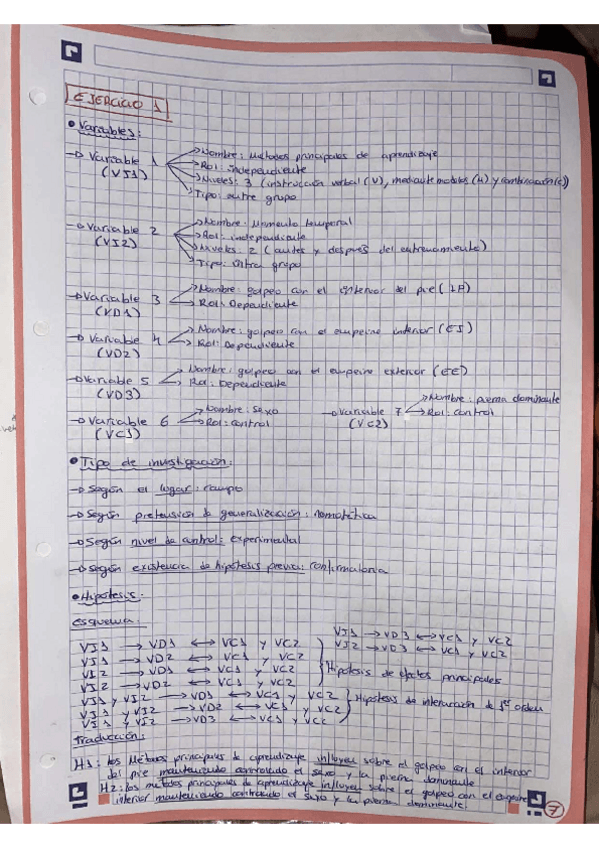 EJERCICIO 1
• Variables:
→ Variable 1 → Nombre: Métodos principales de aprendizaje
(VI1) → Rol: independiente
→ Niveles: 3 (instrucción verbal (V), mediante modelos (M) y combinación (C))
→ Tipo: entre grupo
→ Variable 2 → Nombre: Momento temporal
(VI2) → Rol: independiente
→ Niveles: 2 (antes y después del entrenamiento)
→ Tipo: intra grupo
→ Variable 3 → Nombre: golpeo con el interior del pie
(VD1) → Rol: Dependiente
→ Variable 4 → Nombre: golpeo con el empeine interior (EI)
(VD2) → Rol: Dependiente
→ Variable 5 → Nombre: golpeo con el empeine exterior (EE)
(VD3) → Rol: Dependiente
→ Variable 6 → Nombre: sexo
(VC1) → Rol: control
→ Variable 7 → Nombre: pierna dominante
(VC2) → Rol: control
• Tipo de investigación:
→ Según el lugar: campo
→ Según pretensión de generalización: nomotética
→ Según nivel de control: experimental
→ Según existencia de hipótesis previa: confirmatoria
• Hipótesis:
Esquema:
VI1 → VD1 ↔ VC1 y VC2
VI1 → VD2 ↔ VC1 y VC2
VI2 → VD1 ↔ VC1 y VC2
VI2 → VD2 ↔ VC1 y VC2
VI1 → VD3 ↔ VC1 y VC2
VI2 → VD3 ↔ VC1 y VC2
Hipótesis de efectos principales
VI1 y VI2 → VD1 ↔ VC1 y VC2
VI1 y VI2 → VD2 ↔ VC1 y VC2
VI1 y VI2 → VD3 ↔ VC1 y VC2
Hipótesis de interacción de 1er orden
Traducción:
H1: los Métodos principales de aprendizaje influyen sobre el golpeo con el interior
del pie manteniendo controlado el sexo y la pierna dominante
H2: los métodos principales de aprendizaje influyen sobre el golpeo con el empeine
interior manteniendo controlado el sexo y la pierna dominante.
7